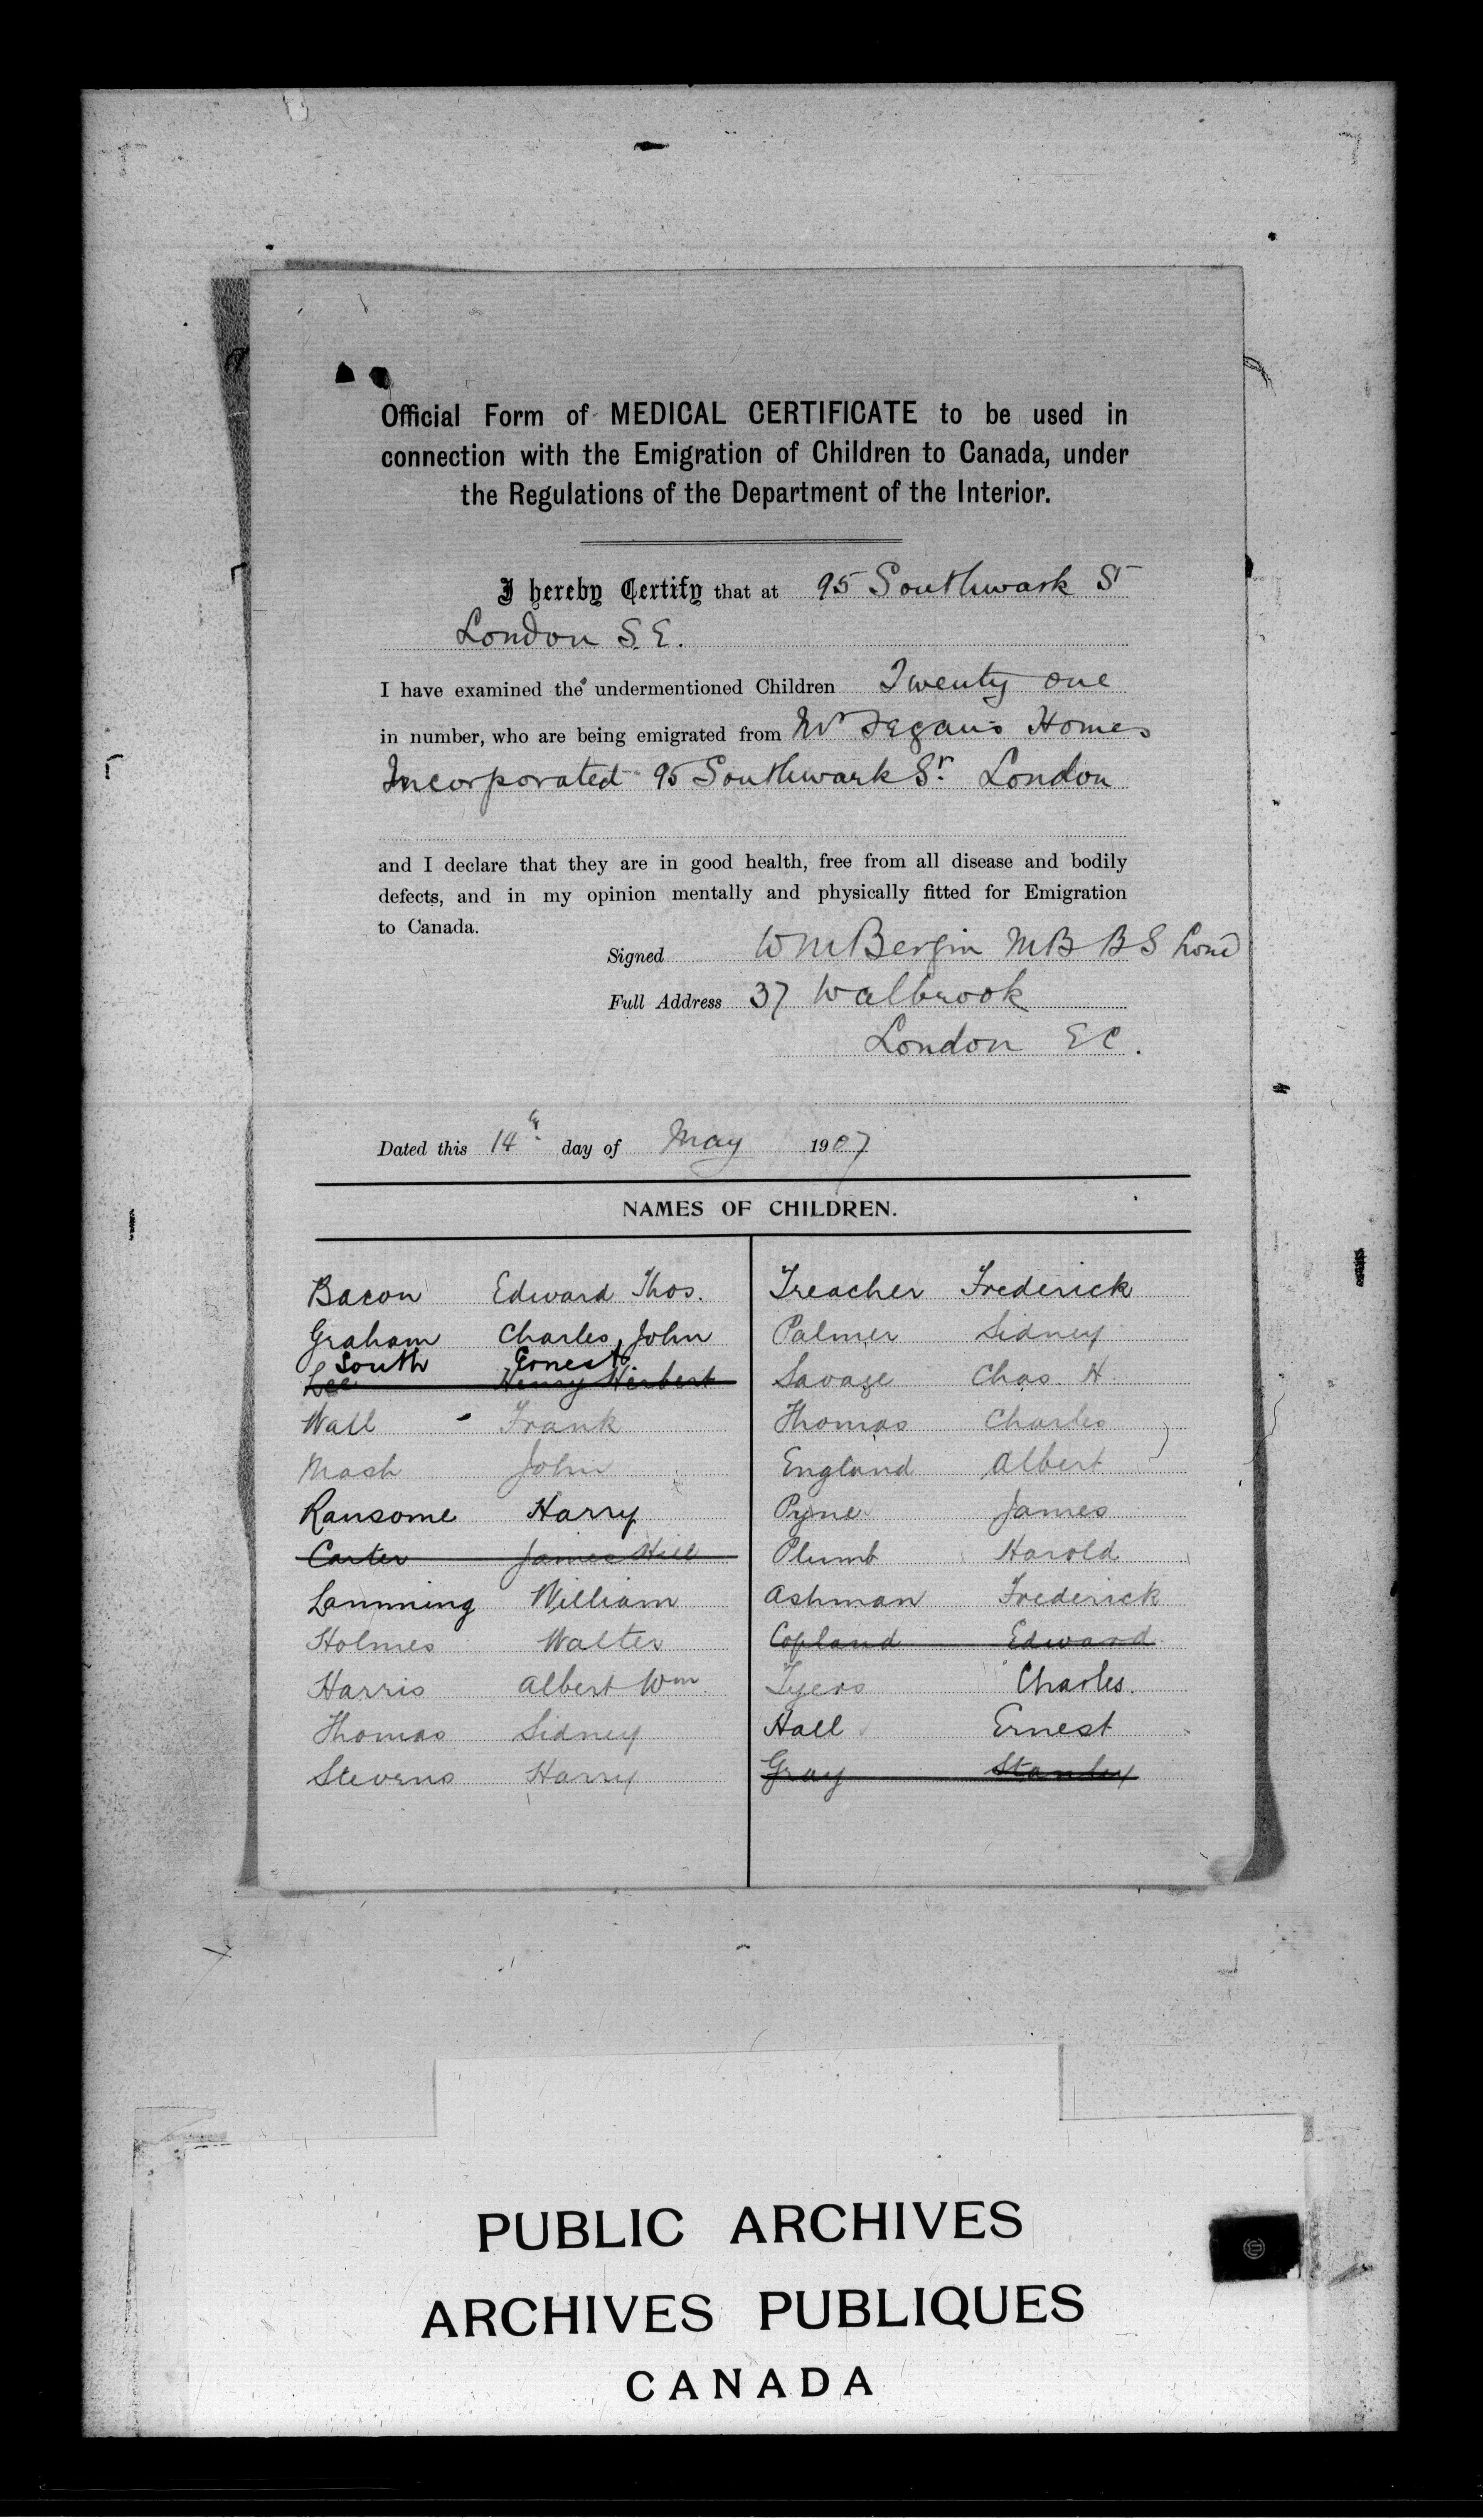 Official Form of MEDICAL CERTIFICATE to be used in
connection with the Emigration of Children to Canada, under
the Regulations of the Department of the Interior.
I hereby Certify that at 95 Southwark St
London S.E.
I have examined the undermentioned Children Twenty one
in number, who are being emigrated from Mr Fegan's Homes
Incorporated 95 Southwark St. London
and I declare that they are in good health, free from all disease and bodily
defects, and in my opinion mentally and physically fitted for Emigration
to Canada.
Signed W M Bergin MB BS Lond
Full Address 37 Walbrook
London E C.
Dated this 14th day of May 1907
NAMES OF CHILDREN.
Bacon Edward Thos.
Graham Charles John
South Ernest
Lee Henry Herbert
Wall Frank
Mash John
Ransome Harry
Carter James Hill
Lamming William
Holmes Walter
Harris Albert Wm.
Thomas Sidney
Stevens Harry
Treacher Frederick
Palmer Sidney
Savage Chas. H
Thomas Charles
England Albert
Pyne James
Plumb Harold
Ashman Frederick
Copland Edward
Tyers Charles.
Hall Ernest
Gray Stanley
PUBLIC ARCHIVES
ARCHIVES PUBLIQUES
CANADA